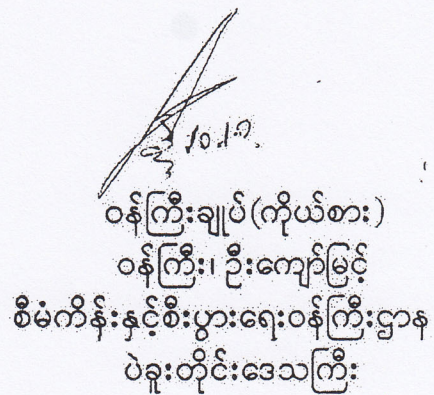 ဝန်ကြီးချုပ်(ကိုယ်စား)
ဝန်ကြီး၊ ဦးကျော်မြင့်
စီမံကိန်းနှင့်စီးပွားရေးဝန်ကြီးဌာန
ပဲခူးတိုင်းဒေသကြီး